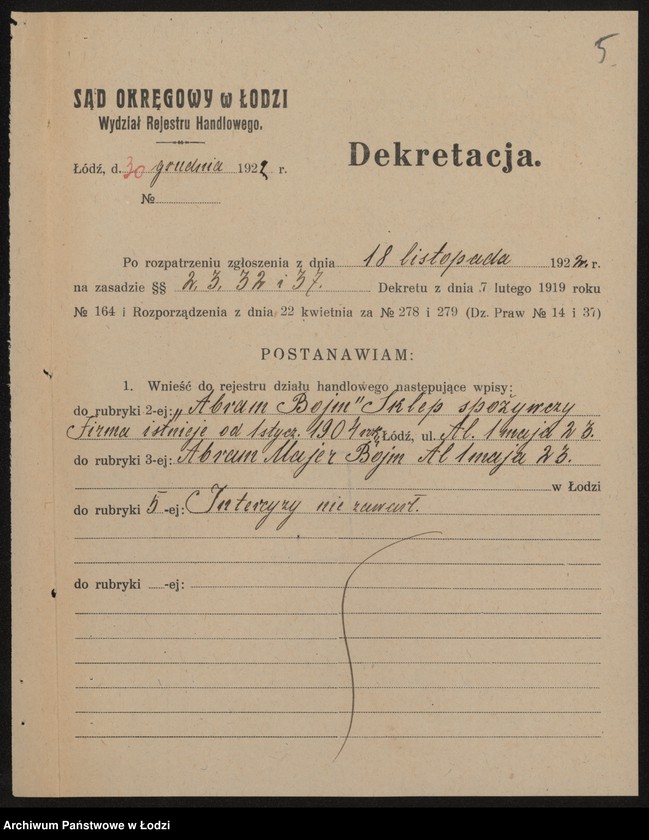 5.
SĄD OKRĘGOWY w ŁODZI
Wydział Rejestru Handlowego.
Dekretacja.
Łódź, d. 30 grudnia 1922 r.
№
Po rozpatrzeniu zgłoszenia z dnia 18 listopada 1922 r.
na zasadzie §§ 2, 3, 32 i 37. Dekretu z dnia 7 lutego 1919 roku
№ 164 i Rozporządzenia z dnia 22 kwietnia za № 278 i 279 (Dz. Praw № 14 i 37)
POSTANAWIAM:
1. Wnieść do rejestru działu handlowego następujące wpisy:
do rubryki 2-ej: „Abram Bojm" Sklep spożywczy
Firma istnieje od 1 stycz. 1904 roku Łódź, ul. Al. 1 maja 23.
do rubryki 3-ej: Abram Majer Bojm Al 1 maja 23.
w Łodzi
do rubryki 5-ej: Intercyzy nie zawarł.
do rubryki -ej:
Archiwum Państwowe w Łodzi